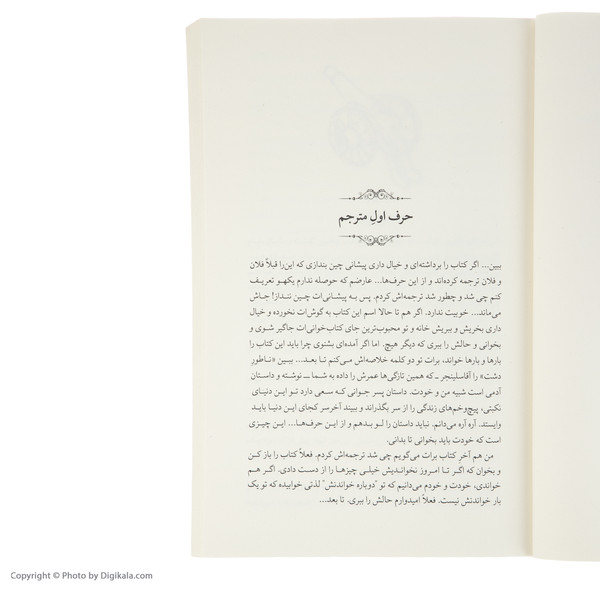 حرف اولِ مترجم
ببین... اگر کتاب را برداشته‌ای و خیال داری پیشانی چین بندازی که این‌را قبلاً فلان
و فلان ترجمه کرده‌اند و از این حرف‌ها... عارضم که حوصله ندارم یکهو تعریف
کنم چی شد و چطور شد ترجمه‌اش کردم. پس به پیشانی‌ات چین ننداز! جاش
می‌ماند... خوبیت ندارد. اگر هم تا حالا اسم این کتاب به گوش‌ات نخورده و خیال
داری بخریش و ببریش خانه و تو محبوب‌ترین جای کتاب‌خوانی‌ات جاگیر شوی و
بخوانی و حالش را ببری که دیگر هیچ. اما اگر آمده‌ای بشنوی چرا باید این کتاب را
بارها و بارها خواند، برات تو دو کلمه خلاصه‌اش می‌کنم تا بعد... ببین «ناطورِ
دشت» را آقاسلینجر ـ که همین تازگی‌ها عمرش را داده به شما ـ نوشته و داستان
آدمی است شبیه من و خودت. داستان پسر جوانی که سعی دارد تو این دنیای
نکبتی، پیچ‌وخم‌های زندگی را از سر بگذراند و ببیند آخرسر کجای این دنیا باید
وایستد. آره آره می‌دانم. نباید داستان را لو بدهم و از این حرف‌ها... این چیزی
است که خودت باید بخوانی تا بدانی.
من هم آخرِ کتاب برات می‌گویم چی شد ترجمه‌اش کردم. فعلاً کتاب را باز کن
و بخوان که اگر تا امروز نخواندیش خیلی چیزها را از دست دادی. اگر هم
خواندی، خودت و خودم می‌دانیم که تو "دوباره خواندنش" لذتی خوابیده که تو یک
بار خواندنش نیست. فعلاً امیدوارم حالش را ببری. تا بعد...
Copyright © Photo by Digikala.com